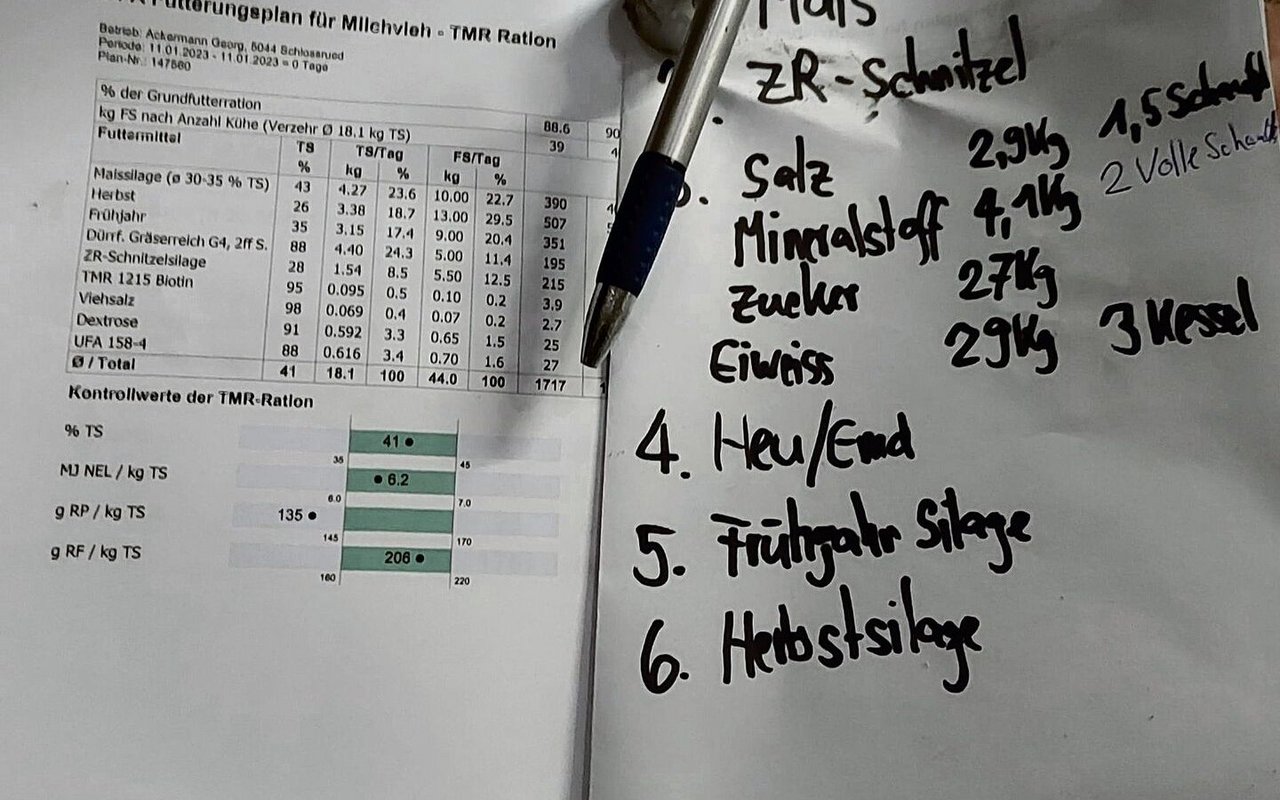 Fütterungsplan für Milchvieh - TMR Ration
Betrieb: Ackermann Georg, 5044 Schlossrued
Periode: 11.01.2023 - 11.01.2023 = 0 Tage
Plan-Nr.: 147560
% der Grundfutterration 88.6 90
kg FS nach Anzahl Kühe (Verzehr Ø 18.1 kg TS) 39 4
Futtermittel TS TS/Tag FS/Tag
% kg % kg %
Maissilage (ø 30-35 % TS) 43 4.27 23.6 10.00 22.7 390
Herbst 26 3.38 18.7 13.00 29.5 507
Frühjahr 35 3.15 17.4 9.00 20.4 351
Dürrf. Gräserreich G4, 2ff S. 88 4.40 24.3 5.00 11.4 195
ZR-Schnitzelsilage 28 1.54 8.5 5.50 12.5 215
TMR 1215 Biotin 95 0.095 0.5 0.10 0.2 3.9
Viehsalz 98 0.069 0.4 0.07 0.2 2.7
Dextrose 91 0.592 3.3 0.65 1.5 25
UFA 158-4 88 0.616 3.4 0.70 1.6 27
Ø / Total 41 18.1 100 44.0 100 1717 1
Kontrollwerte der TMR-Ration
% TS 41
35 45
MJ NEL / kg TS 6.2
6.0 7.0
g RP / kg TS 135
145 170
g RF / kg TS 206
160 220
Mais
ZR-Schnitzel
Salz 2,9Kg 1,5
Mineralstoff 4,1Kg 2 Volle
Zucker 27Kg
Eiweiss 29Kg 3 Kessel
4. Heu/Emd
5. Frühjahr Silage
6. Herbstsilage